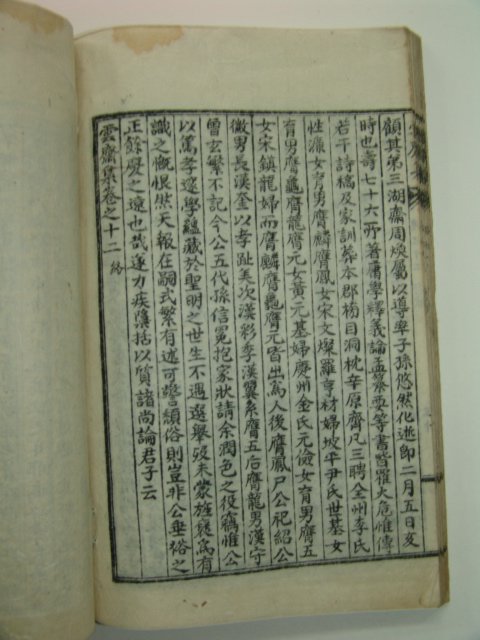 顧其弟三湖齋周煥屬以導率子孫悠然化逝即二月五日亥
時也壽七十六所著庸學釋義論孟纂要等書皆罹火危惟傳
若干詩稿及家訓葬本郡栢目洞枕辛原齊凡三聘全州李氏
性濂女育男膺麟膺鳳女宋文燦羅亨材婦坡平尹氏世基女
育男膺龜膺龍元女黃元基婦慶州金氏元儉女育男膺五
女宋鎮龍婦而膺麟膺龜膺元皆出爲人後膺鳳尸公祀紹公
微男長漢金以孝趾美次漢彩季漢翼系膺五后膺龍男漢守
曾玄繁不記今公五代孫信冕抱家狀請余潤色之役竊惟公
以篤孝邃學蘊藏於聖明之世生不遇選擧歿未蒙旌褒爲有
識之慨恨然天報在嗣式繁有述可警頹俗則豈非公垂裕之
正餘慶之遠也哉遂力疾檃括以質諸尚論君子云
雲齋集卷之十二 終